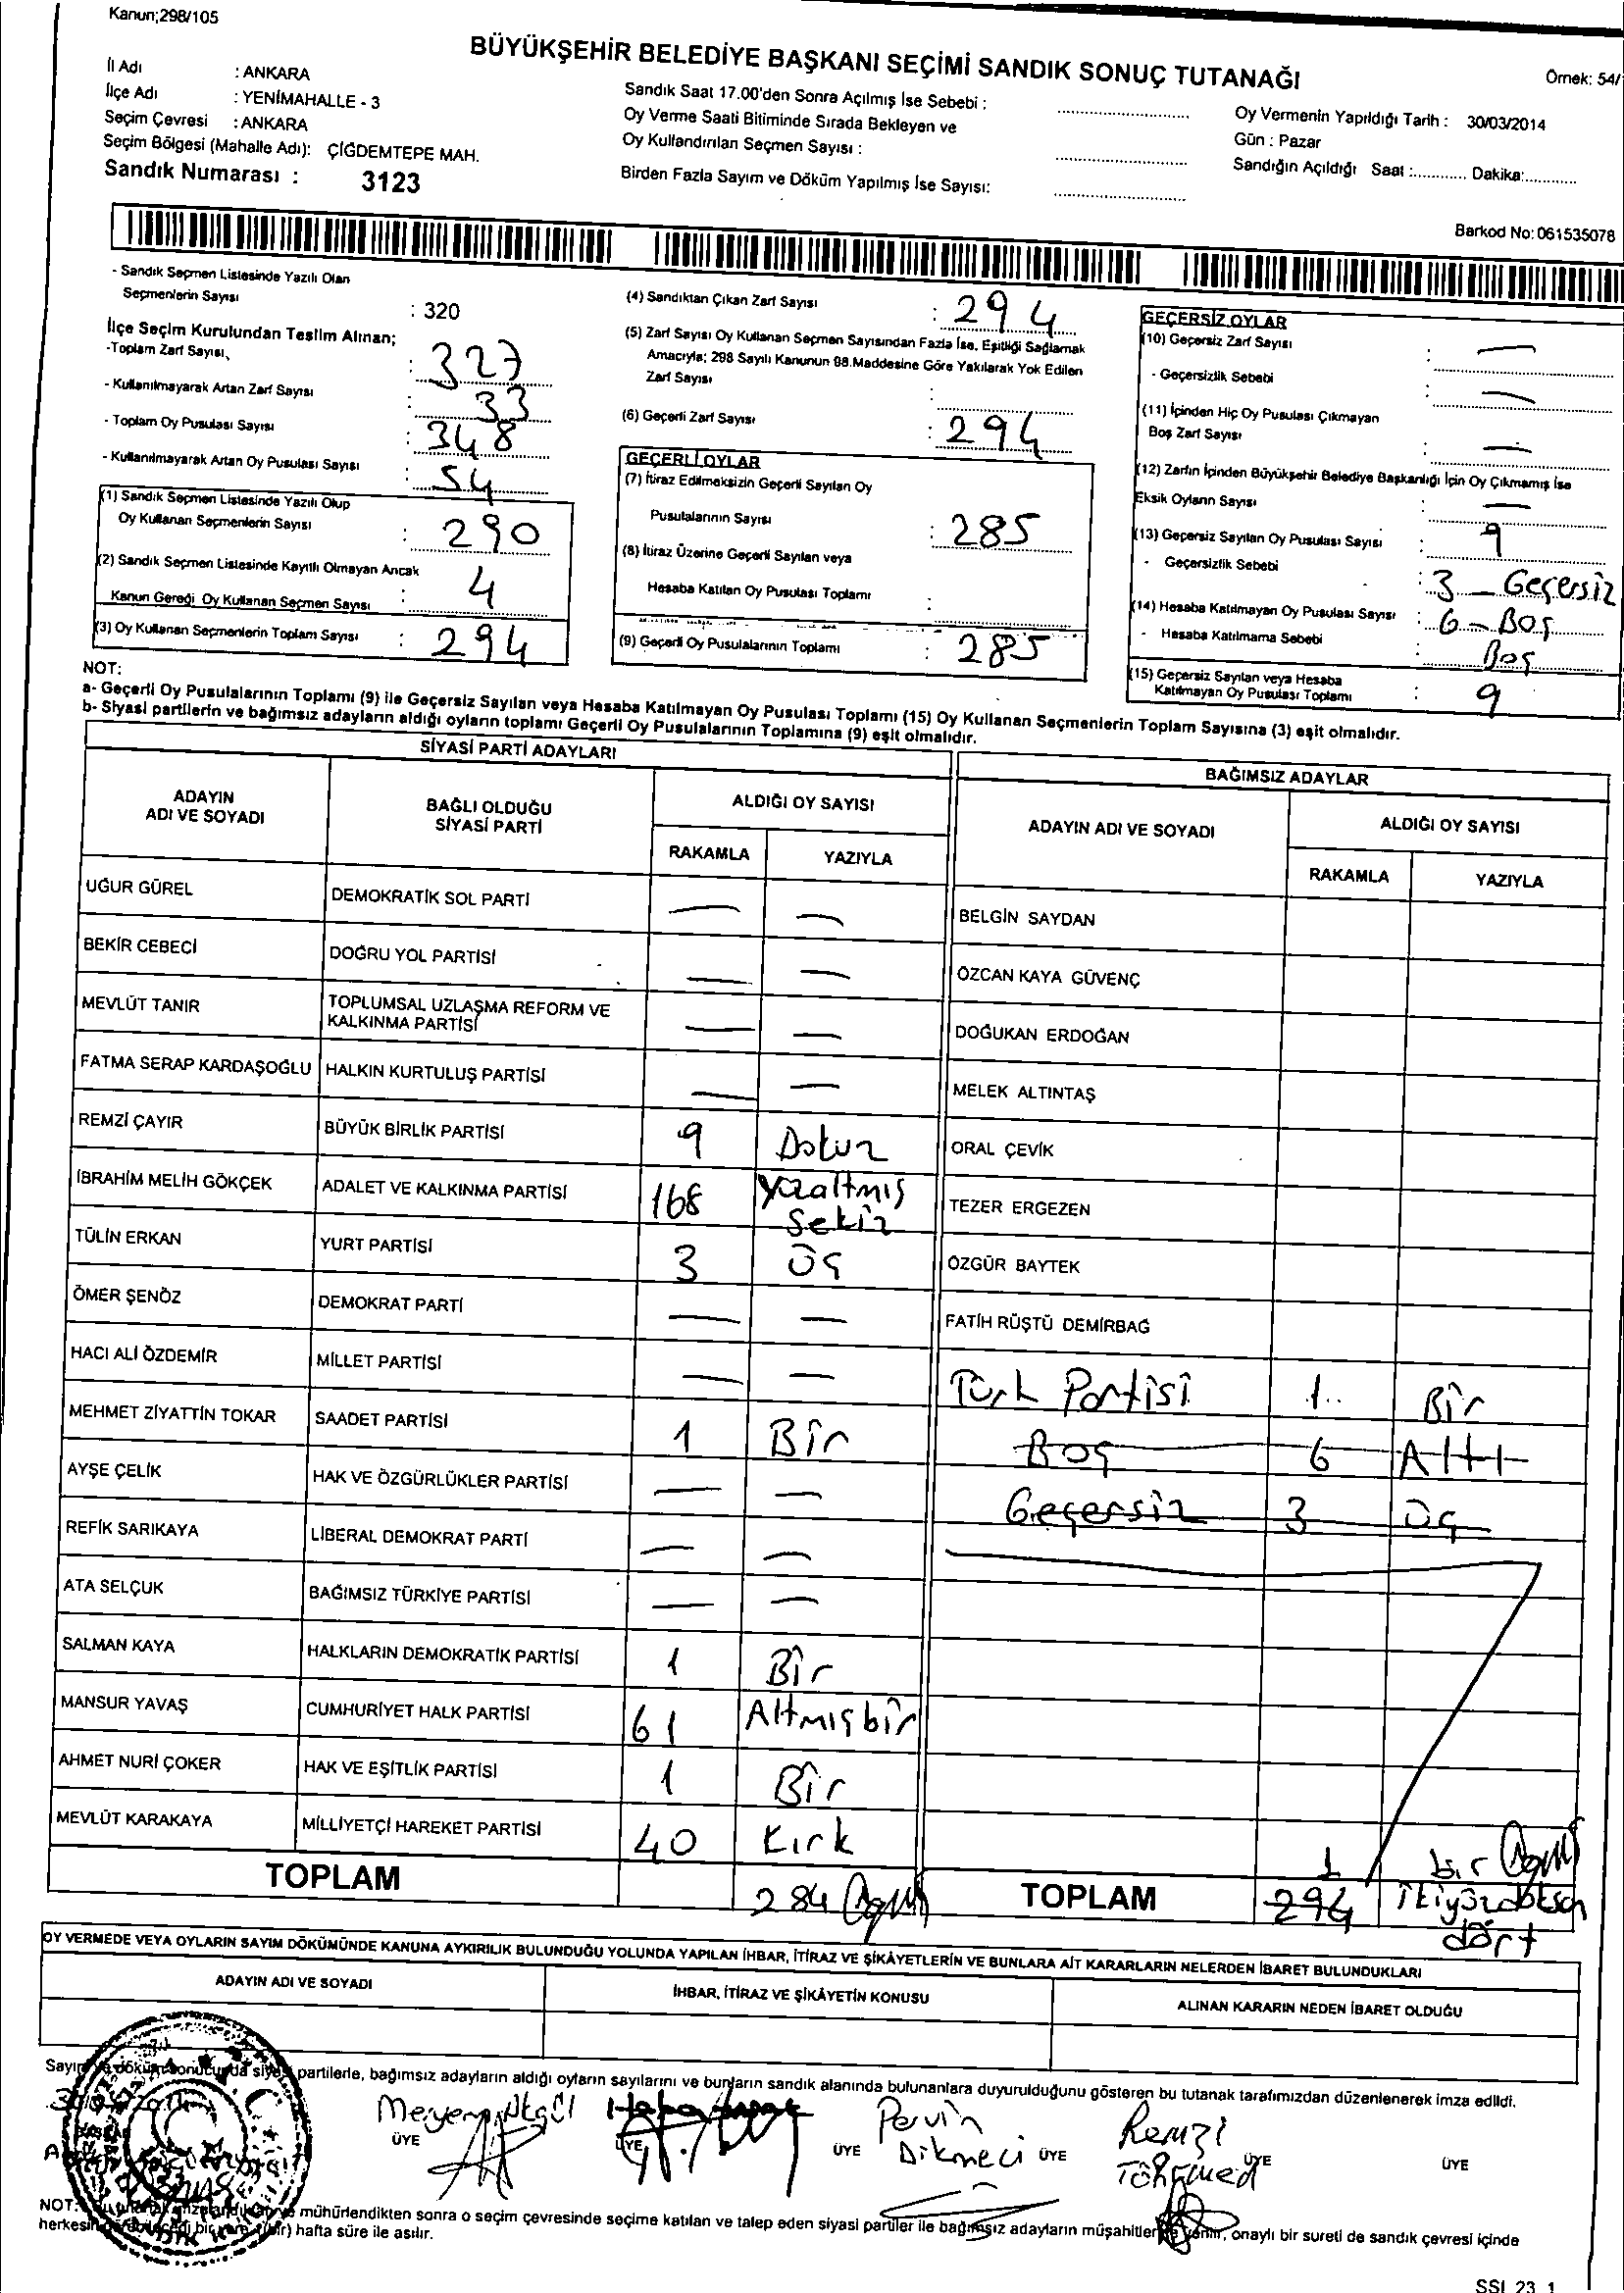 Kanun;298/105
BÜYÜKŞEHİR BELEDİYE BAŞKANI SEÇİMİ SANDIK SONUÇ TUTANAĞI
Örnek: 54/
İl Adı : ANKARA
İlçe Adı : YENİMAHALLE - 3
Seçim Çevresi : ANKARA
Seçim Bölgesi (Mahalle Adı): ÇİĞDEMTEPE MAH.
Sandık Numarası : 3123
Sandık Saat 17.00'den Sonra Açılmış İse Sebebi :
Oy Verme Saati Bitiminde Sırada Bekleyen ve
Oy Kullandırılan Seçmen Sayısı :
Birden Fazla Sayım ve Döküm Yapılmış İse Sayısı:
Oy Vermenin Yapıldığı Tarih : 30/03/2014
Gün : Pazar
Sandığın Açıldığı Saat :............ Dakika:...........
Barkod No: 061535078
- Sandık Seçmen Listesinde Yazılı Olan
Seçmenlerin Sayısı : 320
İlçe Seçim Kurulundan Teslim Alınan;
-Toplam Zarf Sayısı, : 327
- Kullanılmayarak Artan Zarf Sayısı : 33
- Toplam Oy Pusulası Sayısı : 348
- Kullanılmayarak Artan Oy Pusulası Sayısı : 54
(1) Sandık Seçmen Listesinde Yazılı Olup
Oy Kullanan Seçmenlerin Sayısı : 290
(2) Sandık Seçmen Listesinde Kayıtlı Olmayan Ancak
Kanun Gereği Oy Kullanan Seçmen Sayısı : 4
(3) Oy Kullanan Seçmenlerin Toplam Sayısı : 294
(4) Sandıktan Çıkan Zarf Sayısı : 294
(5) Zarf Sayısı Oy Kullanan Seçmen Sayısından Fazla İse, Eşitliği Sağlamak
Amacıyla; 298 Sayılı Kanunun 98.Maddesine Göre Yakılarak Yok Edilen
Zarf Sayısı :
(6) Geçerli Zarf Sayısı : 294
GEÇERLİ OYLAR
(7) İtiraz Edilmeksizin Geçerli Sayılan Oy
Pusulalarının Sayısı : 285
(8) İtiraz Üzerine Geçerli Sayılan veya
Hesaba Katılan Oy Pusulası Toplamı :
(9) Geçerli Oy Pusulalarının Toplamı : 285
GEÇERSİZ OYLAR
(10) Geçersiz Zarf Sayısı : —
- Geçersizlik Sebebi : —
(11) İçinden Hiç Oy Pusulası Çıkmayan
Boş Zarf Sayısı : —
(12) Zarfın İçinden Büyükşehir Belediye Başkanlığı İçin Oy Çıkmamış İse
Eksik Oyların Sayısı : —
(13) Geçersiz Sayılan Oy Pusulası Sayısı : 9
- Geçersizlik Sebebi : 3 - Geçersiz
(14) Hesaba Katılmayan Oy Pusulası Sayısı : 6 - Boş
- Hesaba Katılmama Sebebi : Boş
(15) Geçersiz Sayılan veya Hesaba
Katılmayan Oy Pusulası Toplamı : 9
NOT:
a- Geçerli Oy Pusulalarının Toplamı (9) ile Geçersiz Sayılan veya Hesaba Katılmayan Oy Pusulası Toplamı (15) Oy Kullanan Seçmenlerin Toplam Sayısına (3) eşit olmalıdır.
b- Siyasi partilerin ve bağımsız adayların aldığı oyların toplamı Geçerli Oy Pusulalarının Toplamına (9) eşit olmalıdır.
SİYASİ PARTİ ADAYLARI
ADAYIN
ADI VE SOYADI
BAĞLI OLDUĞU
SİYASİ PARTİ
ALDIĞI OY SAYISI
RAKAMLA YAZIYLA
UĞUR GÜREL DEMOKRATİK SOL PARTİ — —
BEKİR CEBECİ DOĞRU YOL PARTİSİ — —
MEVLÜT TANIR TOPLUMSAL UZLAŞMA REFORM VE
KALKINMA PARTİSİ — —
FATMA SERAP KARDAŞOĞLU HALKIN KURTULUŞ PARTİSİ — —
REMZİ ÇAYIR BÜYÜK BİRLİK PARTİSİ 9 Dokuz
İBRAHİM MELİH GÖKÇEK ADALET VE KALKINMA PARTİSİ 168 Yüzaltmış
Sekiz
TÜLİN ERKAN YURT PARTİSİ 3 Üç
ÖMER ŞENÖZ DEMOKRAT PARTİ — —
HACI ALİ ÖZDEMİR MİLLET PARTİSİ — —
MEHMET ZİYATTİN TOKAR SAADET PARTİSİ 1 Bir
AYŞE ÇELİK HAK VE ÖZGÜRLÜKLER PARTİSİ — —
REFİK SARIKAYA LİBERAL DEMOKRAT PARTİ — —
ATA SELÇUK BAĞIMSIZ TÜRKİYE PARTİSİ — —
SALMAN KAYA HALKLARIN DEMOKRATİK PARTİSİ 1 Bir
MANSUR YAVAŞ CUMHURİYET HALK PARTİSİ 61 Altmışbir
AHMET NURİ ÇOKER HAK VE EŞİTLİK PARTİSİ 1 Bir
MEVLÜT KARAKAYA MİLLİYETÇİ HAREKET PARTİSİ 40 Kırk
TOPLAM 284
BAĞIMSIZ ADAYLAR
ADAYIN ADI VE SOYADI
ALDIĞI OY SAYISI
RAKAMLA YAZIYLA
BELGİN SAYDAN
ÖZCAN KAYA GÜVENÇ
DOĞUKAN ERDOĞAN
MELEK ALTINTAŞ
ORAL ÇEVİK
TEZER ERGEZEN
ÖZGÜR BAYTEK
FATİH RÜŞTÜ DEMİRBAĞ
Türk Partisi 1 Bir
Boş 6 Altı
Geçersiz 3 Üç
1 bir
TOPLAM 294 ikiyüzdoksan
dört
OY VERMEDE VEYA OYLARIN SAYIM DÖKÜMÜNDE KANUNA AYKIRILIK BULUNDUĞU YOLUNDA YAPILAN İHBAR, İTİRAZ VE ŞİKÂYETLERİN VE BUNLARA AİT KARARLARIN NELERDEN İBARET BULUNDUKLARI
ADAYIN ADI VE SOYADI
İHBAR, İTİRAZ VE ŞİKÂYETİN KONUSU
ALINAN KARARIN NEDEN İBARET OLDUĞU
Sayım ve döküm sonucunda siyasi partilerle, bağımsız adayların aldığı oyların sayılarını ve bunların sandık alanında bulunanlara duyurulduğunu gösteren bu tutanak tarafımızdan düzenlenerek imza edildi.
Meryem
Pervin
Dikmeci
Remzi
ÜYE ÜYE ÜYE ÜYE ÜYE ÜYE
NOT: mühürlendikten sonra o seçim çevresinde seçime katılan ve talep eden siyasi partiler ile bağımsız adayların müşahitlerine verilir, onaylı bir sureti de sandık çevresi içinde
herkesin hafta süre ile asılır.
SSI_23_1